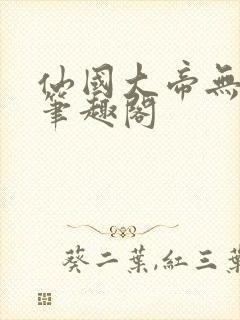 仙國大帝無
筆趣閣
葵二葉,紅三葉